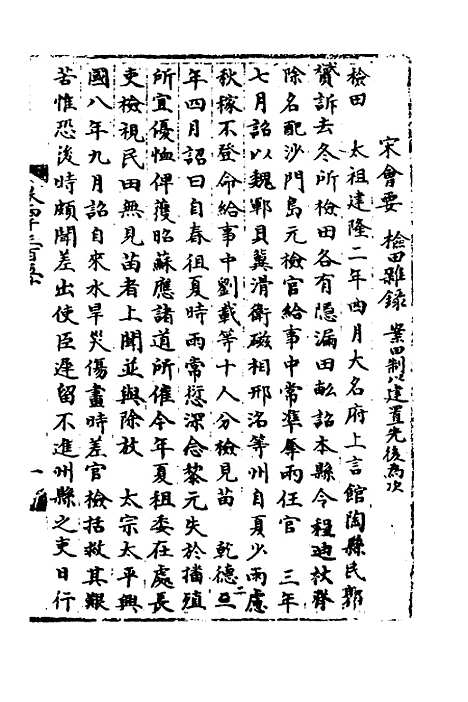 宋會要 檢田雜錄 業田制以建置先後為次
檢田 太祖建隆二年四月大名府上言館陶縣民郭
贇訴去冬所檢田各有隱漏田畝詔本縣令程迪杖脊
除名配沙門島元檢官給事中常準奪兩任官 三年
七月詔以魏鄆貝冀滑衛磁相邢洺等州自夏少雨慮
秋稼不登命給事中劉載等十人分檢見苗 乾德二
年四月詔曰自春徂夏時雨常愆深念黎元失於播殖
所宜優恤俾獲昭蘇應諸道所催今年夏租委在處長
吏檢視民田無見苗者上聞並與除放 太宗太平興
國八年九月詔自來水旱災傷畫時差官檢括救其艱
苦惟恐後時頗聞差出使臣遲留不進州縣之吏日行
一